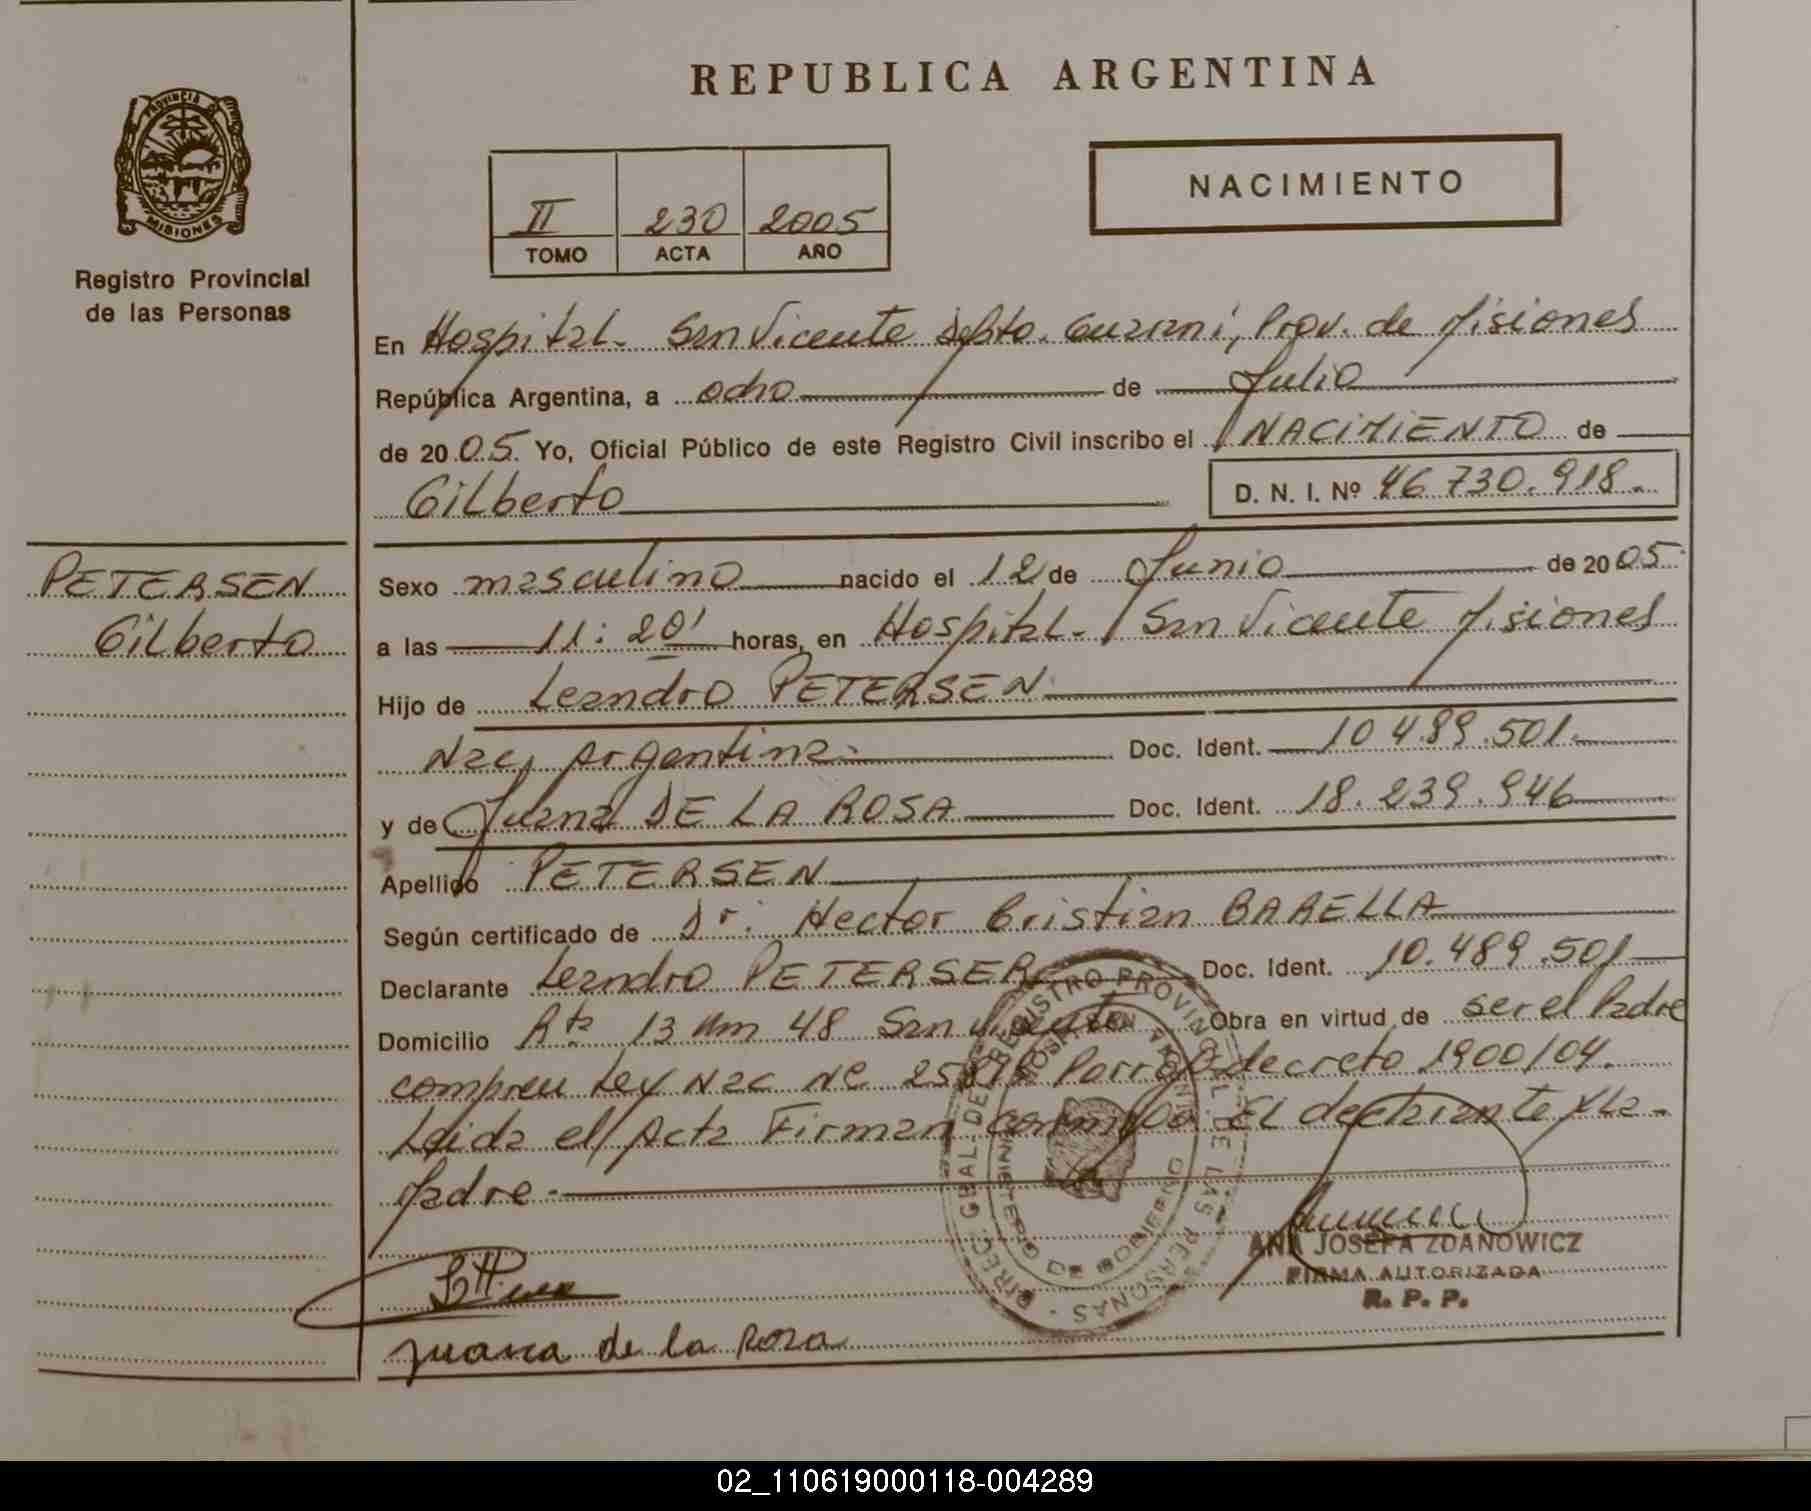 REPUBLICA ARGENTINA
PROVINCIA DE
MISIONES
Registro Provincial
de las Personas
II 230 2005
TOMO ACTA AÑO
NACIMIENTO
En Hospital - San Vicente Dpto. Guarani, Prov. de Misiones
República Argentina, a ocho de Julio
de 2005 Yo, Oficial Público de este Registro Civil inscribo el NACIMIENTO de
Gilberto D. N. I. Nº 46.730.918.
PETERSEN
Gilberto
Sexo masculino nacido el 12 de Junio de 2005
a las 11:20' horas, en Hospital - San Vicente Misiones
Hijo de Leandro PETERSEN
Nac. Argentina Doc. Ident. 10.489.501.
y de Juana DE LA ROSA Doc. Ident. 18.239.946
Apellido PETERSEN
Según certificado de Dr. Hector Cristian BARELLA
Declarante Leandro PETERSEN Doc. Ident. 10.489.501
Domicilio Rta 13 Km 48 San Vicente Obra en virtud de ser el Padre
Ley Nac Nº decreto 1900/04.
Leida el Acta Firman conmigo El declarante y la
Madre
DIREC. GRAL. DE REGISTRO PROVINCIAL DE LAS PERSONAS
MINISTERIO DE GOBIERNO
ANA JOSEFA ZDANOWICZ
FIRMA AUTORIZADA
R. P. P.
juana de la Rosa
02_110619000118-004289